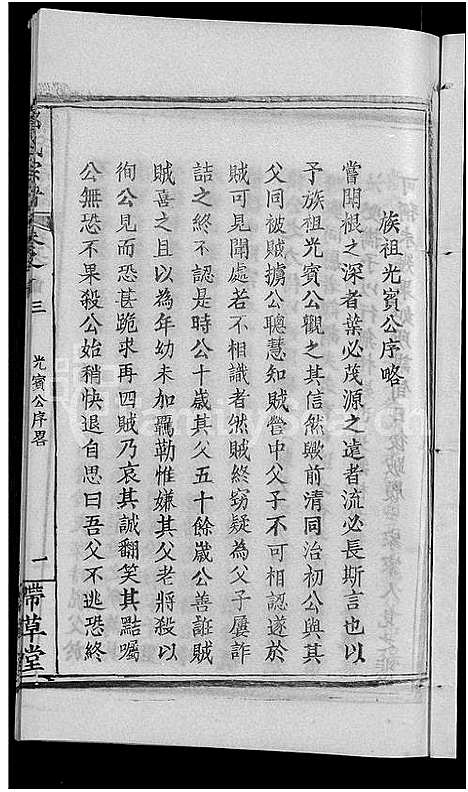 族祖光賓公序略
嘗聞根之深者葉必茂源之遠者流必長斯言也以
予族祖光賓公觀之其信然歟前清同治初公與其
父同被賊擄公聰慧知賊營中父子不可相認遂於
賊可見聞處若不相識者然賊終窃疑為父子屢詐
詰之終不認是時公十歲其父五十餘歲公善誑賊
賊喜之且以為年幼未加羈勒惟嫌其父老將殺以
徇公見而恐甚跪求再四賊乃哀其誠翻笑其點囑
公無恐不果殺公始稍快退自思曰吾父不逃恐終
三
光賓公序畧
一
帶草堂